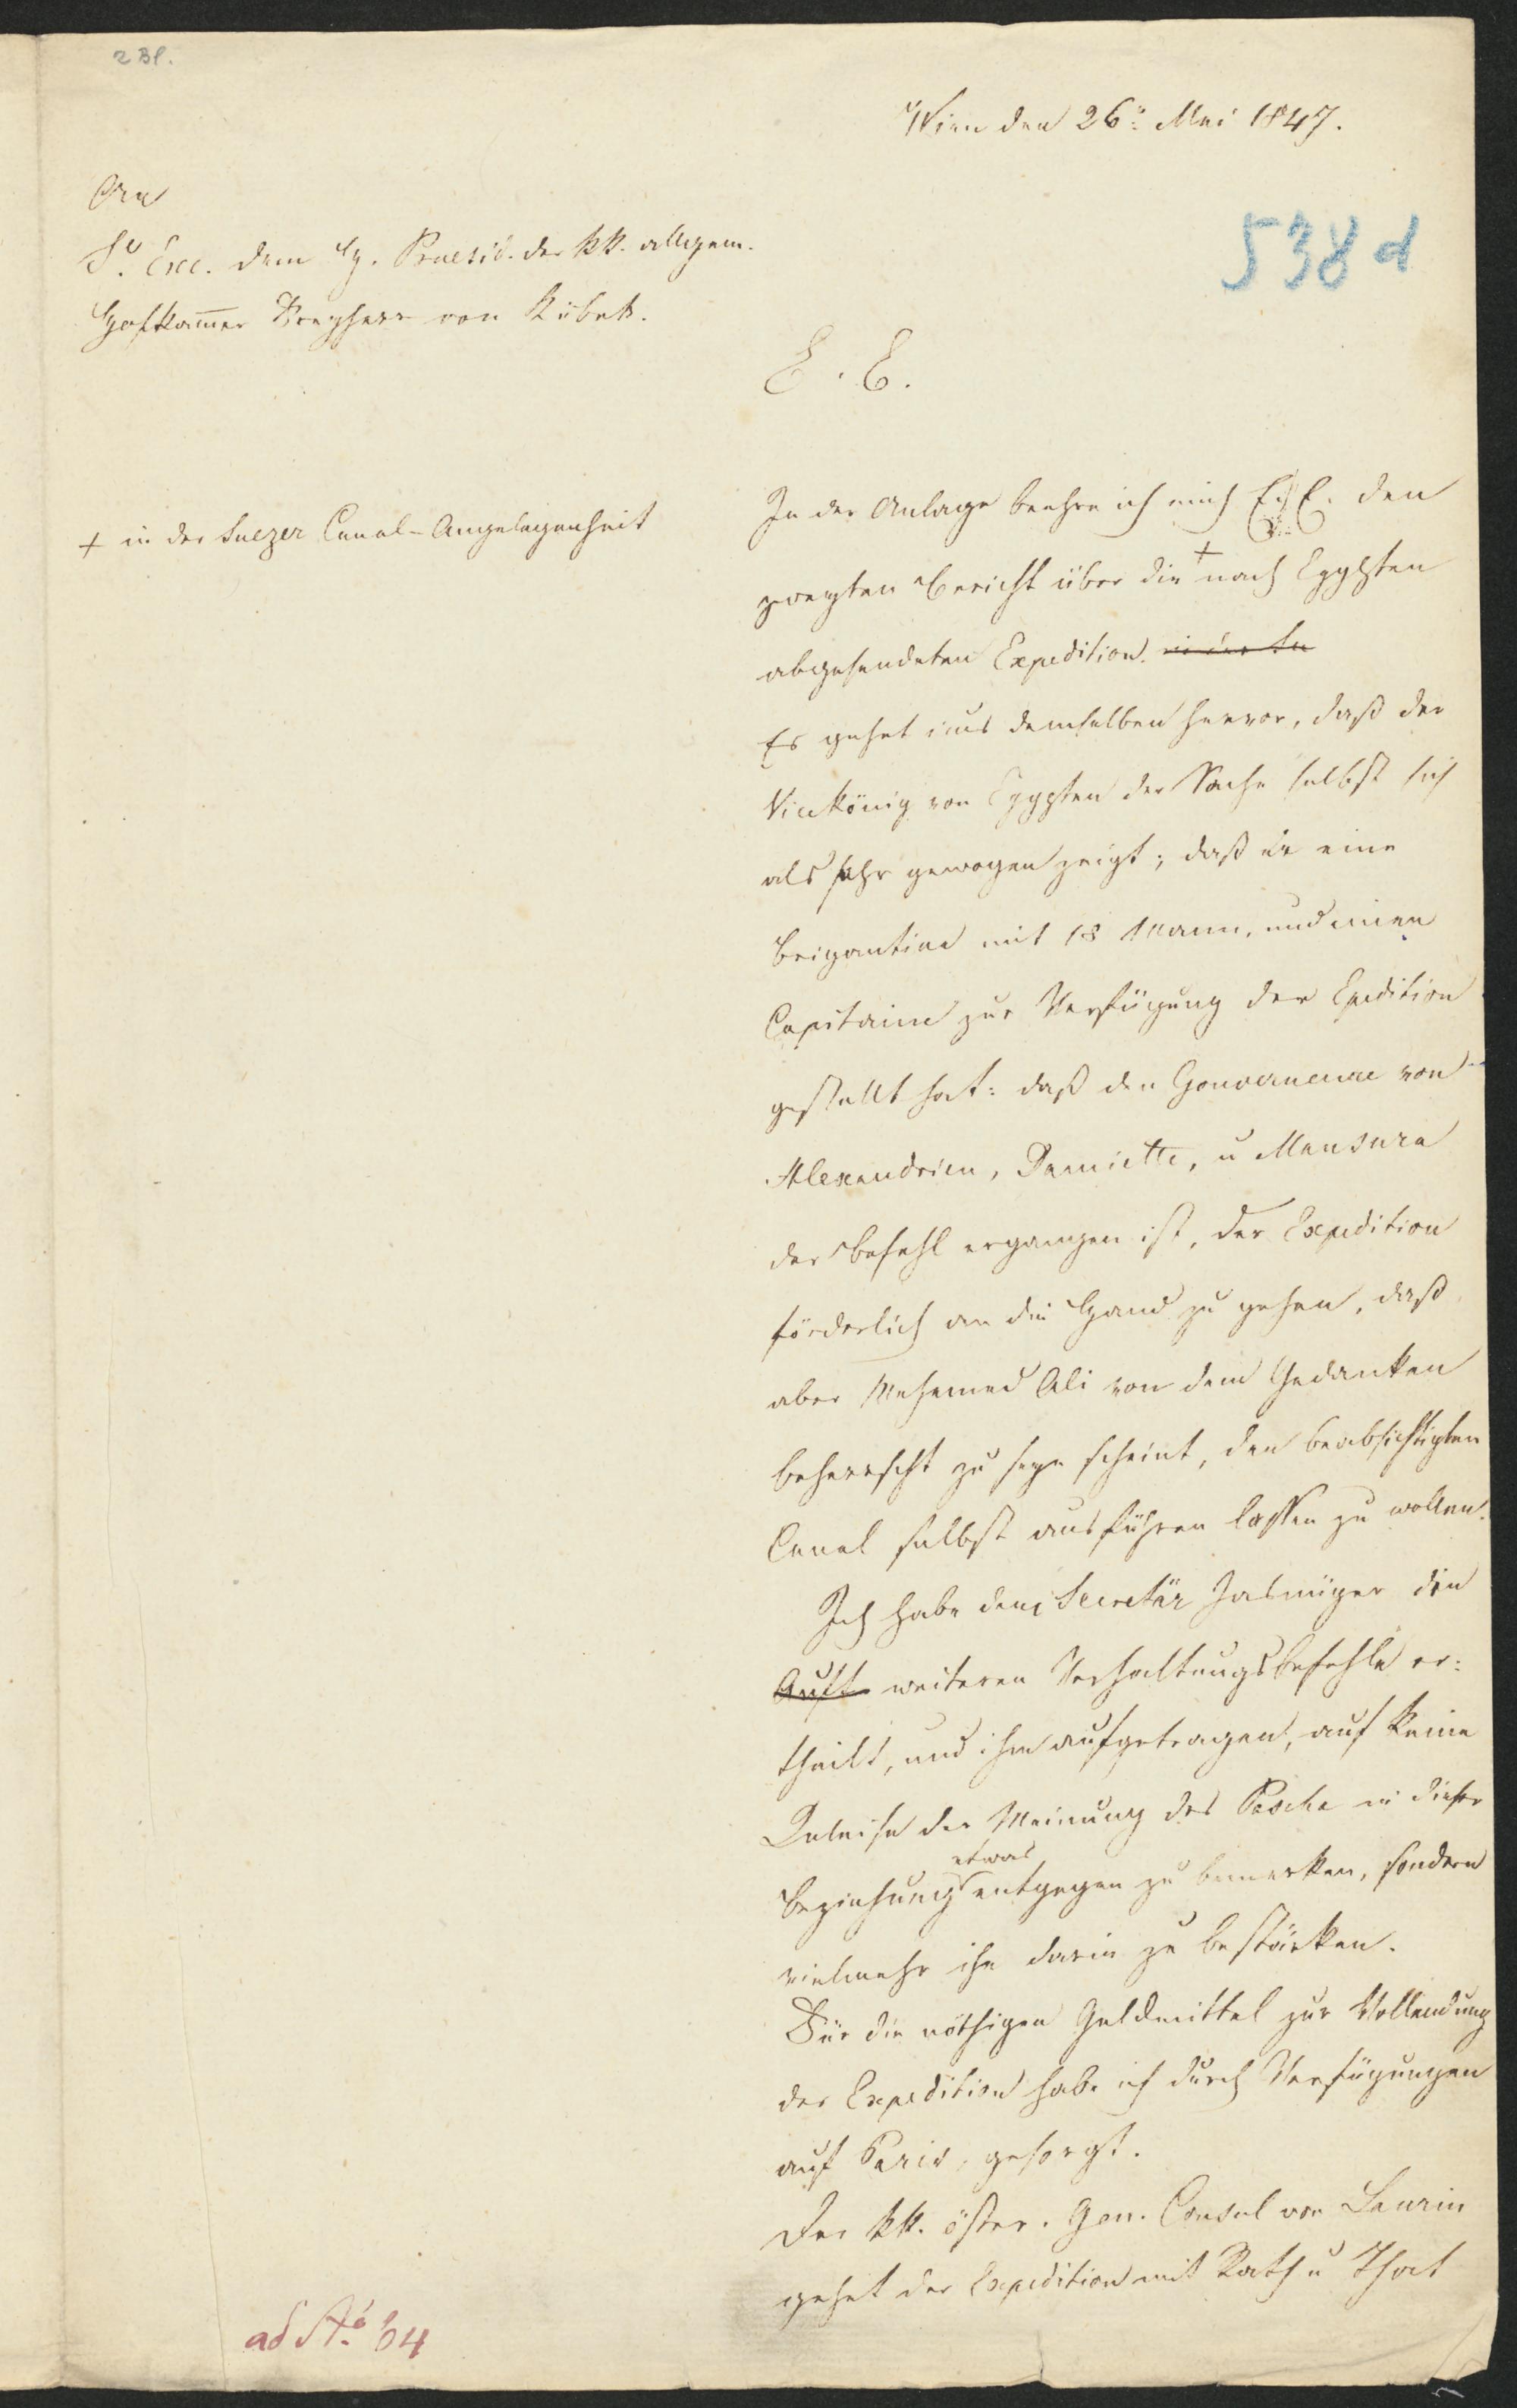 2 Bl.
Wien den 26: Mai 1847.
An
Sr. Exc. dem H. Praesid. der kk. allgem.
Hofkammer Freyherr von Kübek.
538 d
E. E.
+ in der Suezer Canal-Angelegenheit
In der Anlage beehre ich mich E. E. den
zweyten Bericht über die + nach Egypten
abgesendeten Expedition. in der Su
Es gehet aus demselben hervor, daß der
Vicekönig von Egypten der Sache selbst sich
als sehr gewogen zeigt; daß er eine
Brigantine mit 18 Mann, und einen
Capitaine zur Verfügung der Epedition
gestellt hat: daß den Gouverneure von
Alexandrien, Damiette, u Mansura
der Befehl ergangen ist, der Expedition
förderlich an die Hand zu gehen, daß
aber Mehemed Ali von dem Gedanken
beherrscht zu seyn scheint, den beabsichtigten
Canal selbst ausführen lassen zu wollen.
Ich habe dem Secretär Jasnüger die
Auft weiteren Verhaltungsbefehle er:
theilt, und ihm aufgetragen, auf keine
der Meinung des Pascha in dieser
Beziehung etwas entgegen zu bemerken, sondern
vielmehr ihn darin zu bestärken.
Für die nöthigen Geldmittel zur Vollendung
der Expedition habe ich durch Verfügungen
auf Paris, gesorgt.
Der kk. öster. Gen. Consul von Laurin
gehet der Expedition mit Rath u That
ad No. 64